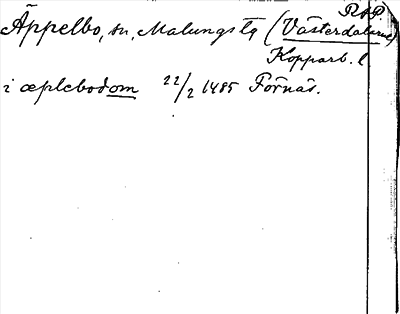 RAP
Äppelbo, sn, Malungs tg (Västerdalarne)
Kopparb. l
i æplebodom 22/2 1485 Fornäs.